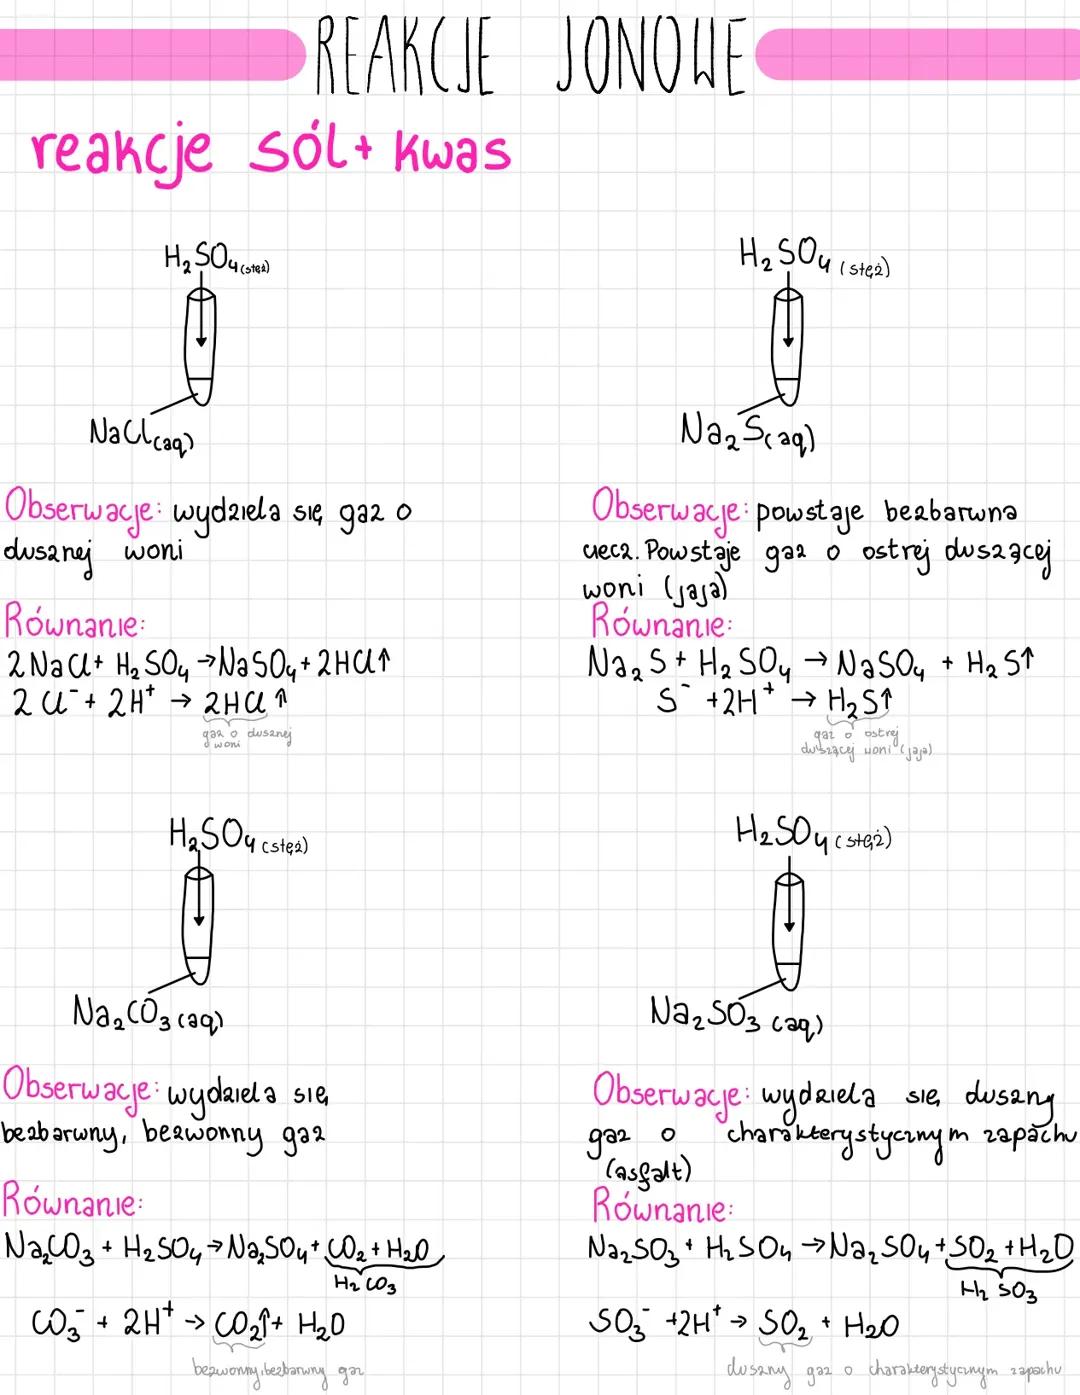 REAKCJE JONOWE
reakcje sól + kwas
H₂SO₄ (stęż)
NaCl(aq)
Obserwacje: wydziela się gaz o
dusznej woni
Równanie:
2NaCl + H₂SO₄ → NaSO₄ + 2HCl↑
2Cl⁻ + 2H⁺ → 2HCl↑
gaz o dusznej
woni
H₂SO₄ (stęż)
Na₂S(aq)
Obserwacje: powstaje bezbarwna
ciecz. Powstaje gaz o ostrej duszącej
woni (jaja)
Równanie:
Na₂S + H₂SO₄ → NaSO₄ + H₂S↑
S⁻ + 2H⁺ → H₂S↑
gaz o ostrej
duszącej woni (jaja)
H₂SO₄ (stęż)
Na₂CO₃ (aq)
Obserwacje: wydziela się
bezbarwny, bezwonny gaz
Równanie:
Na₂CO₃ + H₂SO₄ → Na₂SO₄ + CO₂ + H₂O
H₂CO₃
CO₃⁻ + 2H⁺ → CO₂↑ + H₂O
bezwonny, bezbarwny gaz
H₂SO₄ (stęż)
Na₂SO₃ (aq)
Obserwacje: wydziela się duszny
gaz o charakterystycznym zapachu
(asfalt)
Równanie:
Na₂SO₃ + H₂SO₄ → Na₂SO₄ + SO₂ + H₂O
H₂SO₃
SO₃⁻ + 2H⁺ → SO₂ + H₂O
duszny gaz o charakterystycznym zapachu